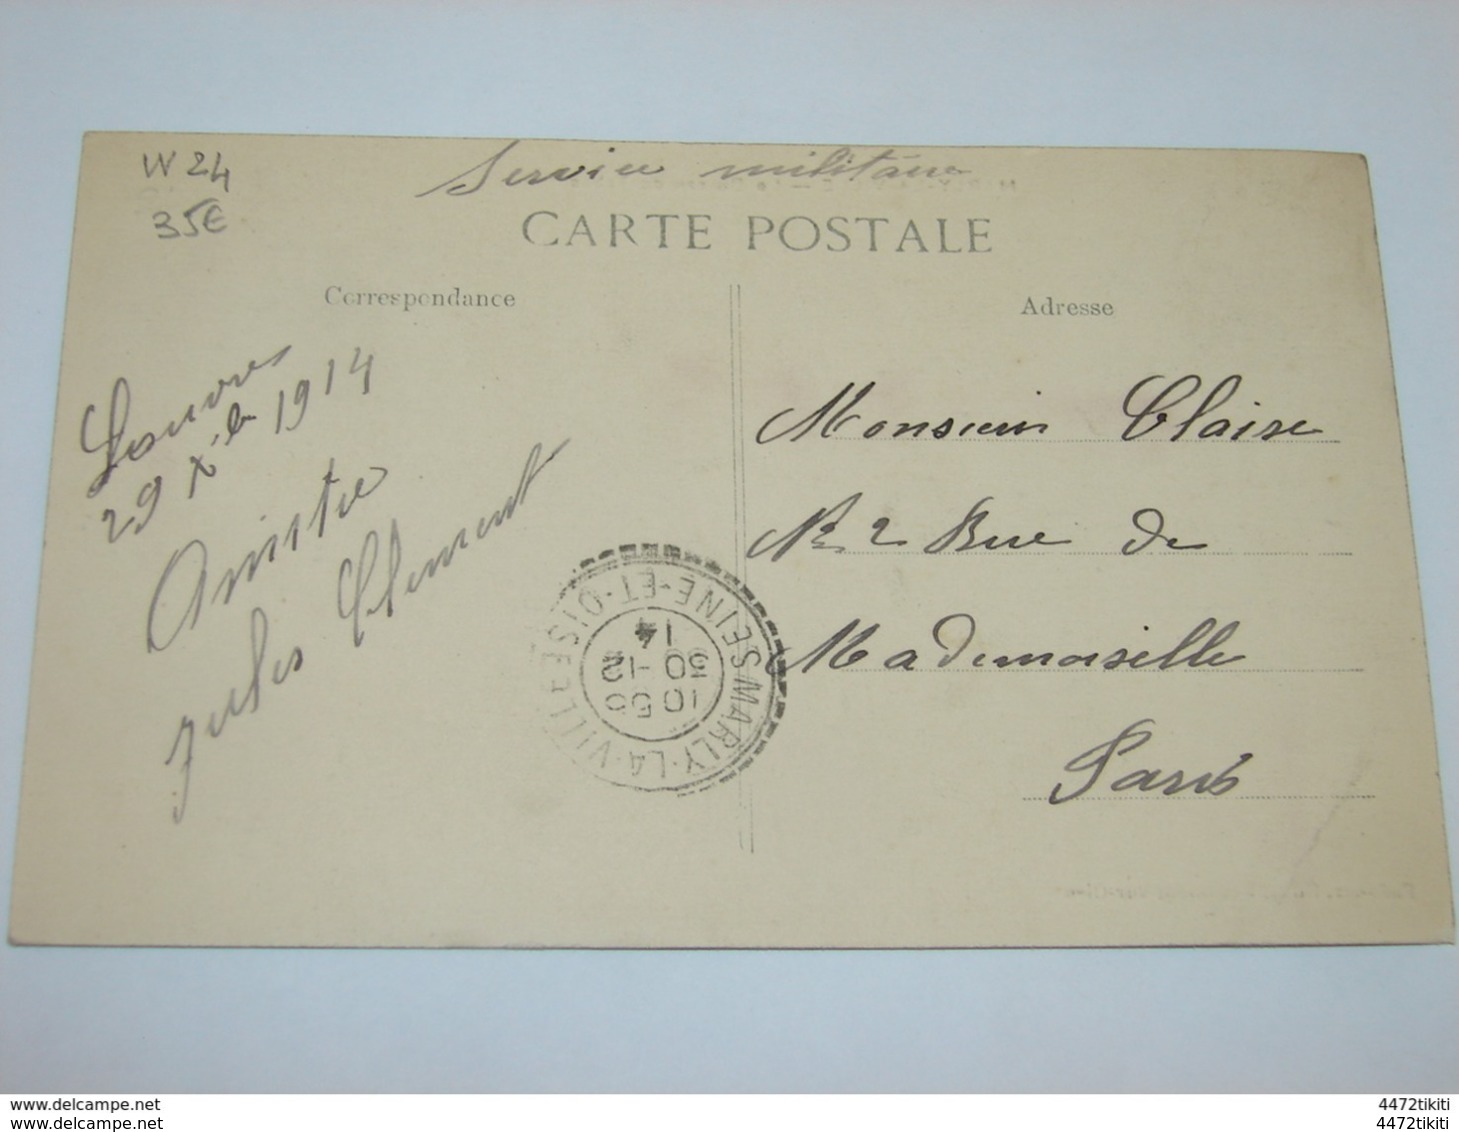 W 24
35€
Service militaire
CARTE POSTALE
Correspondance
Adresse
Louvres
29 Xbre 1914
Amitié
Jules Clement
Monsieur Claise
No 2 Rue de
Mademoiselle
Paris
MARLY-LA-VILLE
SEINE-ET-OISE
10 55
30 -12
14
delcampe.net
delcampe.net
4472tikiti
4472tikiti